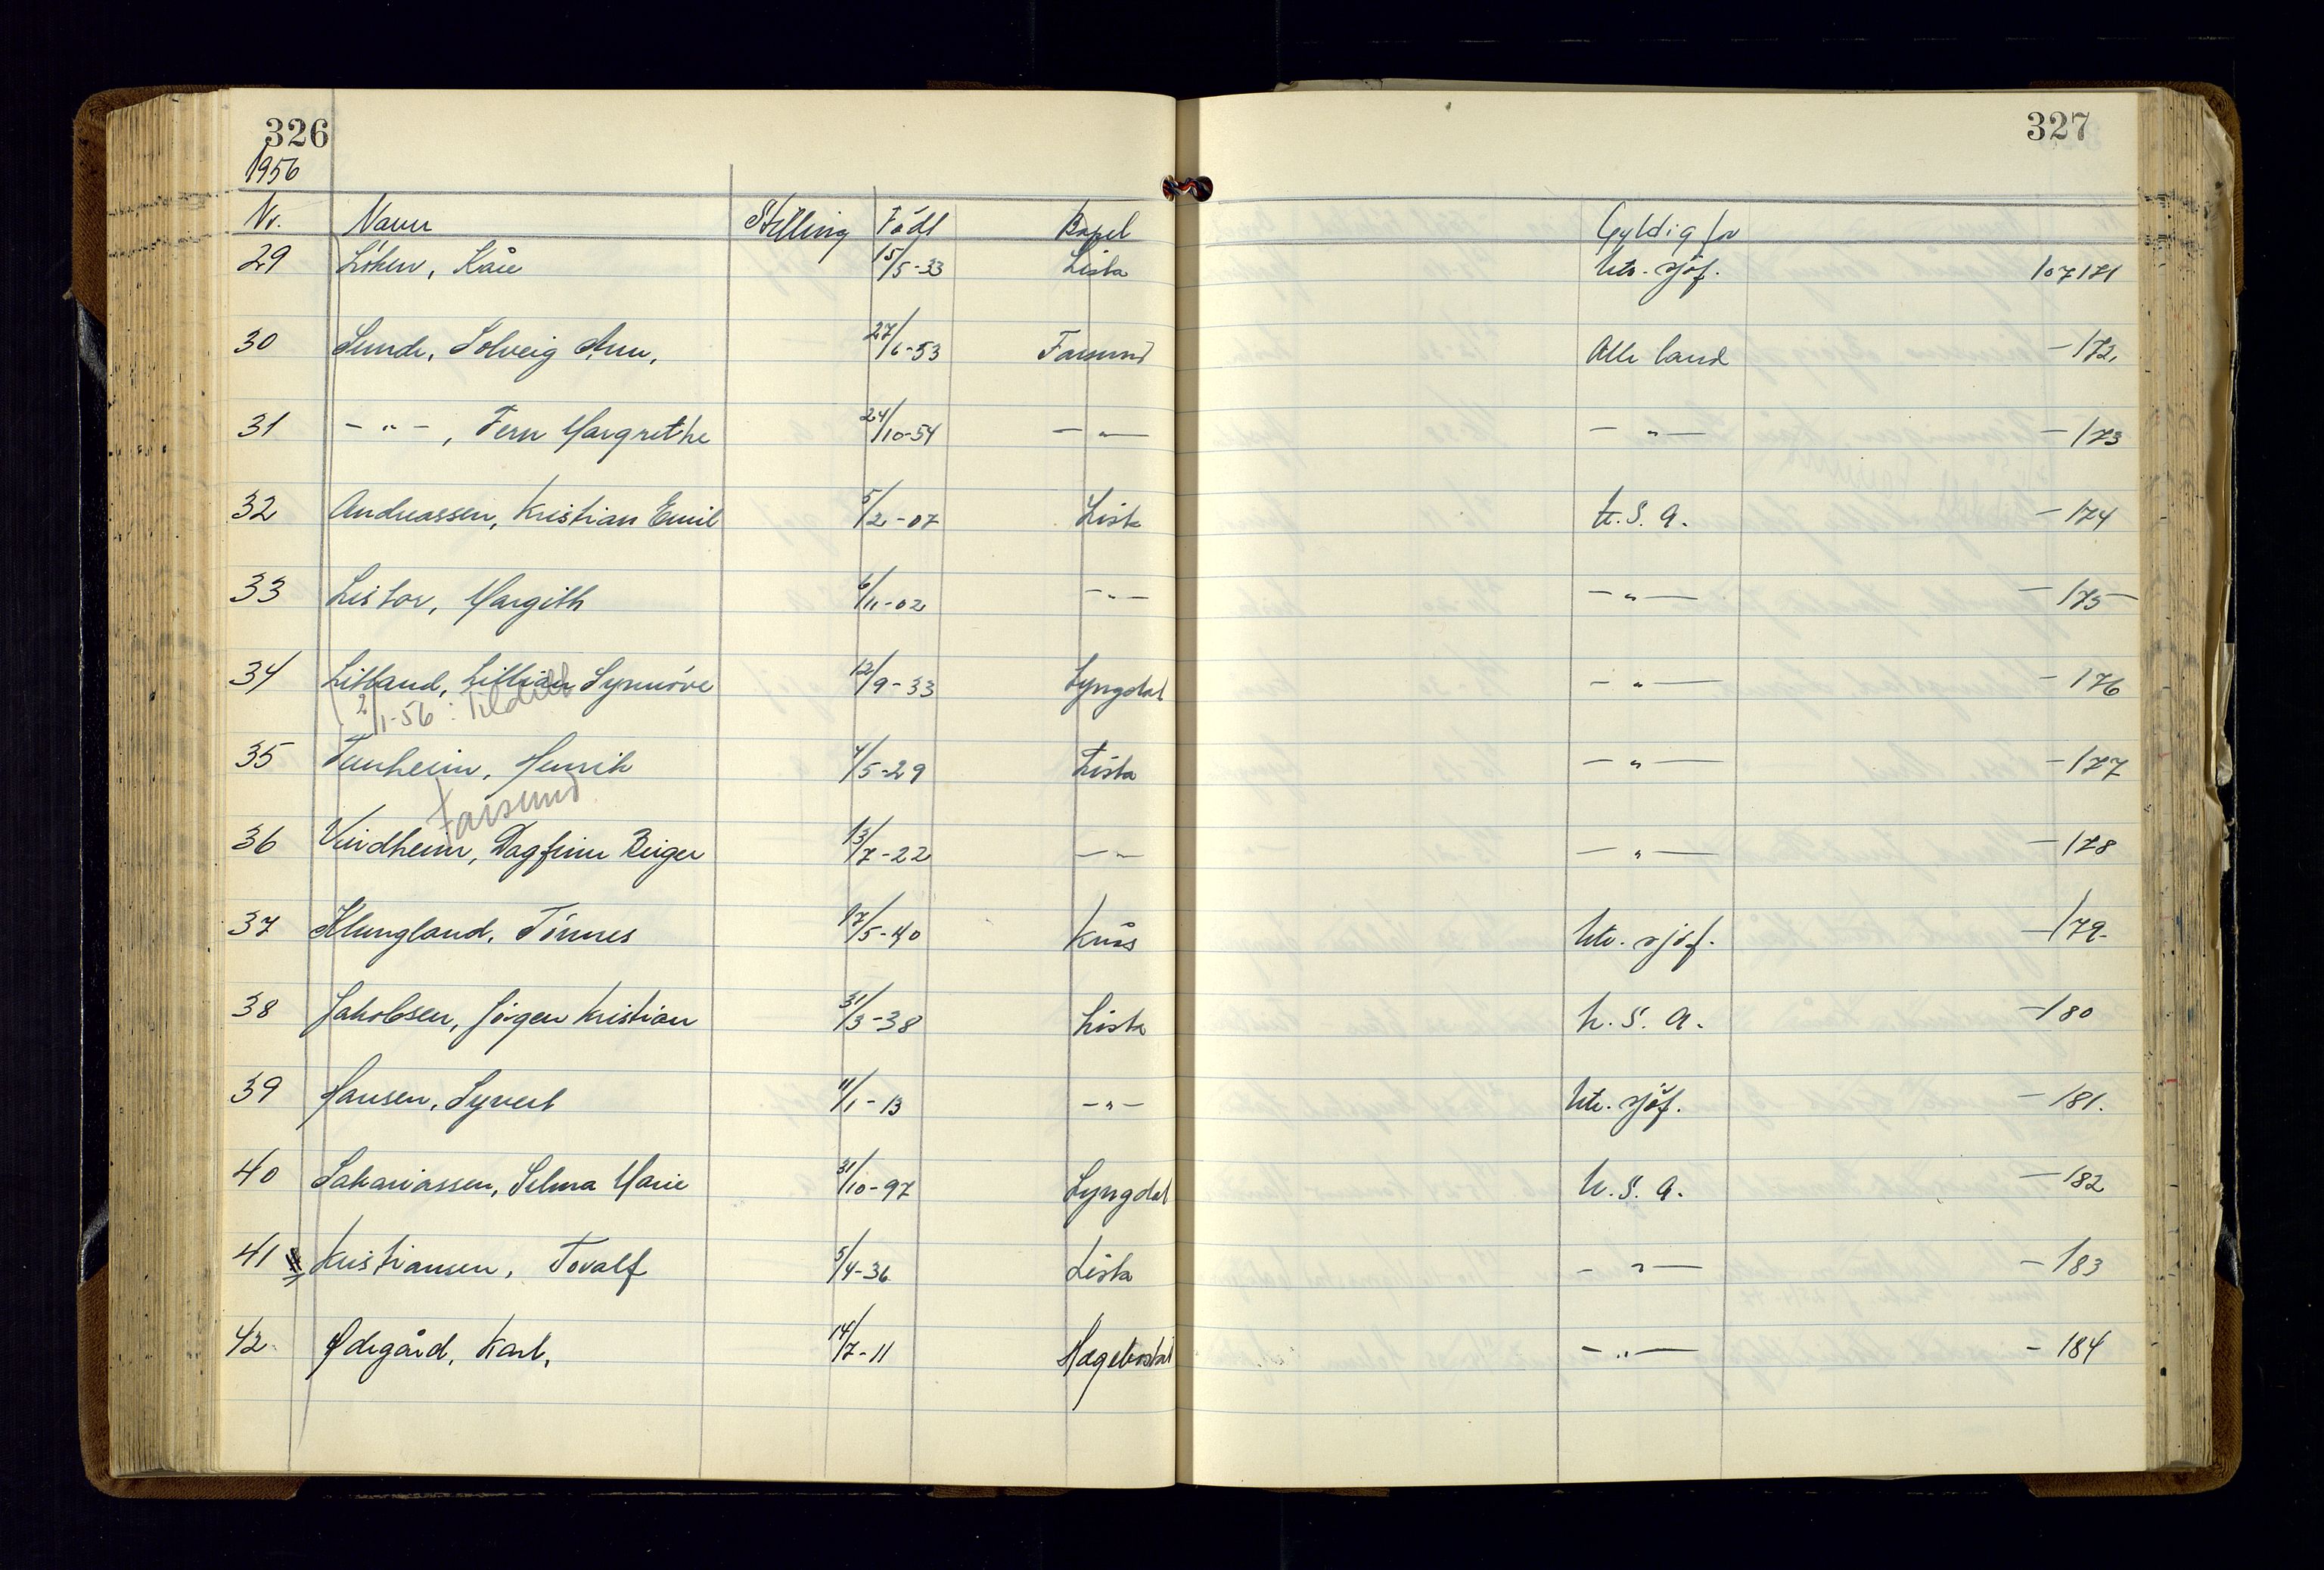 326
327
1956
Nr. Navn Stilling Född Bopel Gyldig for
29 Löken, Kåre 15/5-33 Lista utr. sjöf. 107171
30 Sunde, Solveig Ann, 27/6-53 Farsund Alle land -172.
31 - " - , Fern Margrethe 24/10-54 - " - - " - -173
32 Andreassen, Kristian Emil 5/2-07 Lista U.S.A. -174
33 Listor, Margith 6/11-02 - " - - " - -175
34 Litland, Lillian Synnöve 12/9-33 Lyngdal - " - -176
2/1-56: Tildelt
35 Tunheim, Henrik 4/5-29 Lista - " - -177
Farsund
36 Vindheim, Dagfinn Reiger 13/7-22 - " - - " - -178
37 Klungland, Tönnes 17/5-40 Kvås utr. sjöf. -179.
38 Jakobsen, Jörgen Kristian 31/3-38 Lista U.S.A. -180
39 Hansen, Syvert 11/1-13 - " - utr. sjöf. -181.
40 Sakariassen, Selma Marie 31/10-97 Lyngdal U.S.A. -182
41 Kristiansen, Tovalf 5/4-36 Lista - " - -183
42 Ødegård, Karl, 14/7-11 Hægebostad - " - -184